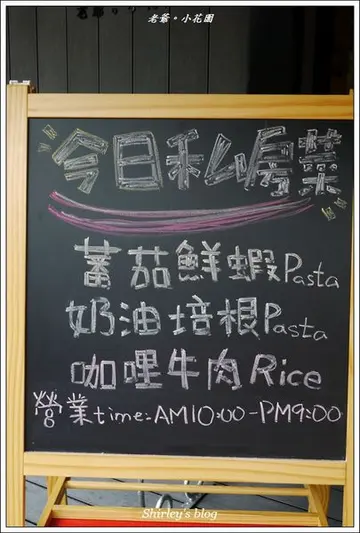 老爺。小花園
今日私房菜
蕃茄鮮蝦Pasta
奶油培根Pasta
咖哩牛肉Rice
營業time:AM10:00-PM9:00
Shirley's blog